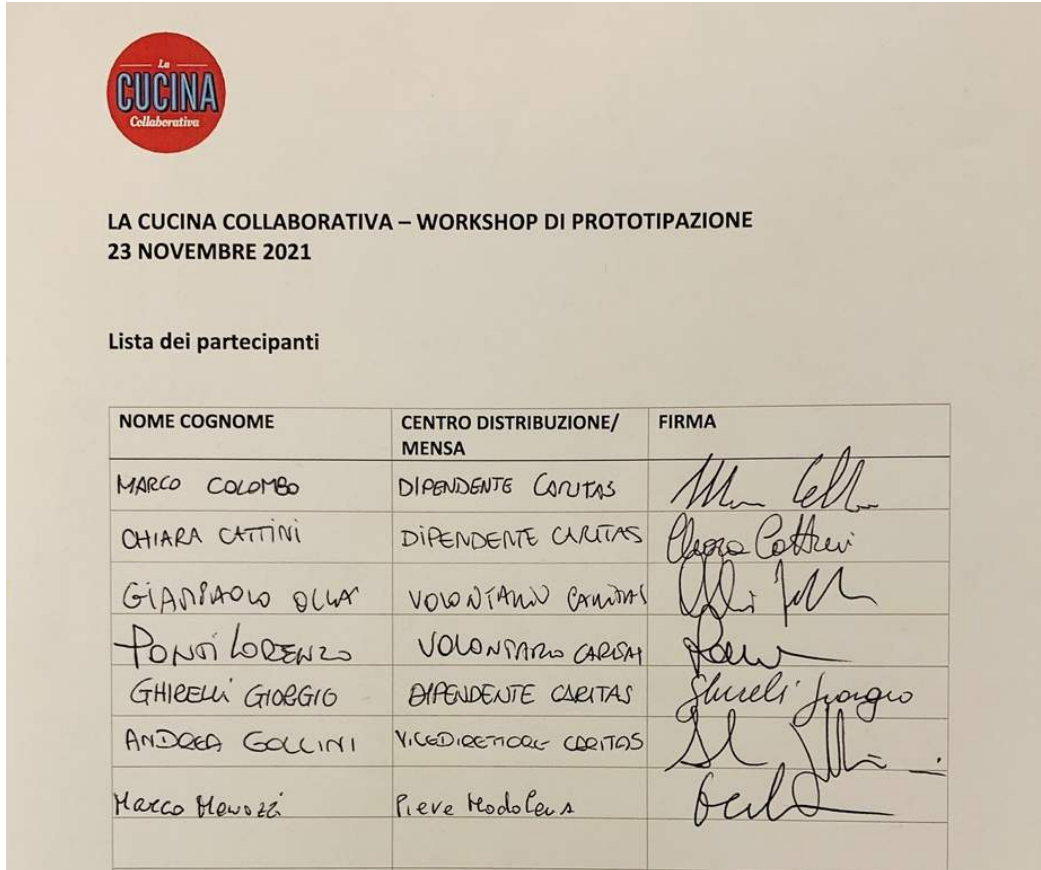 La
CUCINA
Collaborativa
LA CUCINA COLLABORATIVA – WORKSHOP DI PROTOTIPAZIONE
23 NOVEMBRE 2021
Lista dei partecipanti
NOME COGNOME CENTRO DISTRIBUZIONE/ FIRMA
MENSA
MARCO COLOMBO DIPENDENTE CARITAS
CHIARA CATTINI DIPENDENTE CARITAS Chiara Cattini
GIANPAOLO OLLA' VOLONTARIO CARITAS
LORENZO VOLONTARIO
GHIRELLI GIORGIO DIPENDENTE CARITAS Ghirelli Giorgio
ANDREA GOLLINI VICEDIRETTORE CARITAS
Marco Menozzi Pieve Modolena